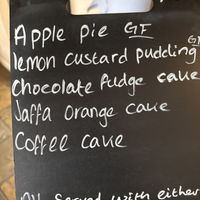 Apple Pie GF
lemon custard pudding GF
Chocolate Fudge cake
Jaffa Orange cake
Coffee cake
All served with either